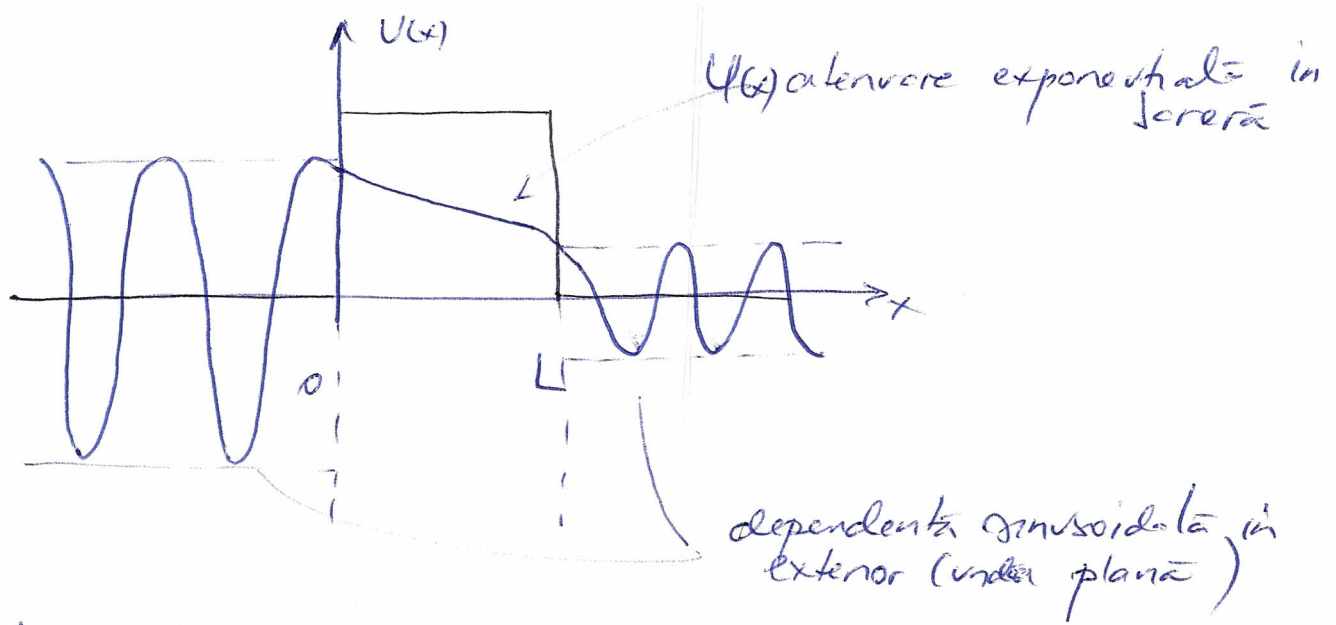 U(x)
Ψ(x) atenuare exponențială în
barieră
x
0
L
dependență sinusoidală în
exterior (undă plană)